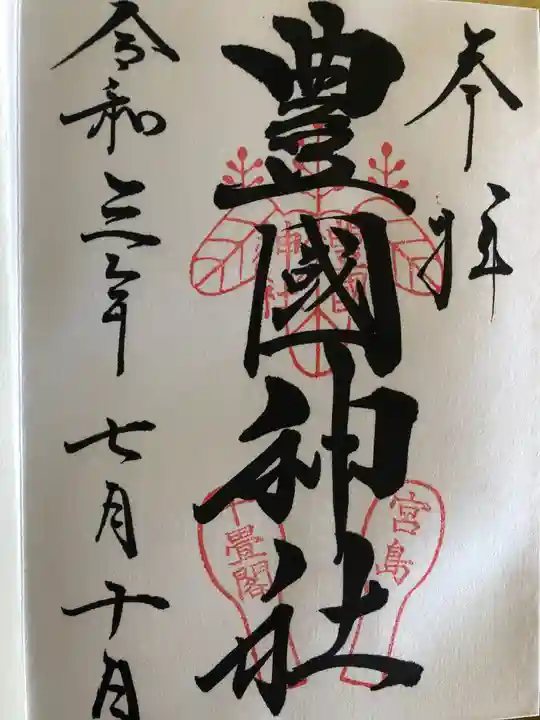 奉拝
豊國神社
令和三年七月十日
豊國
神社
宮島
千畳閣